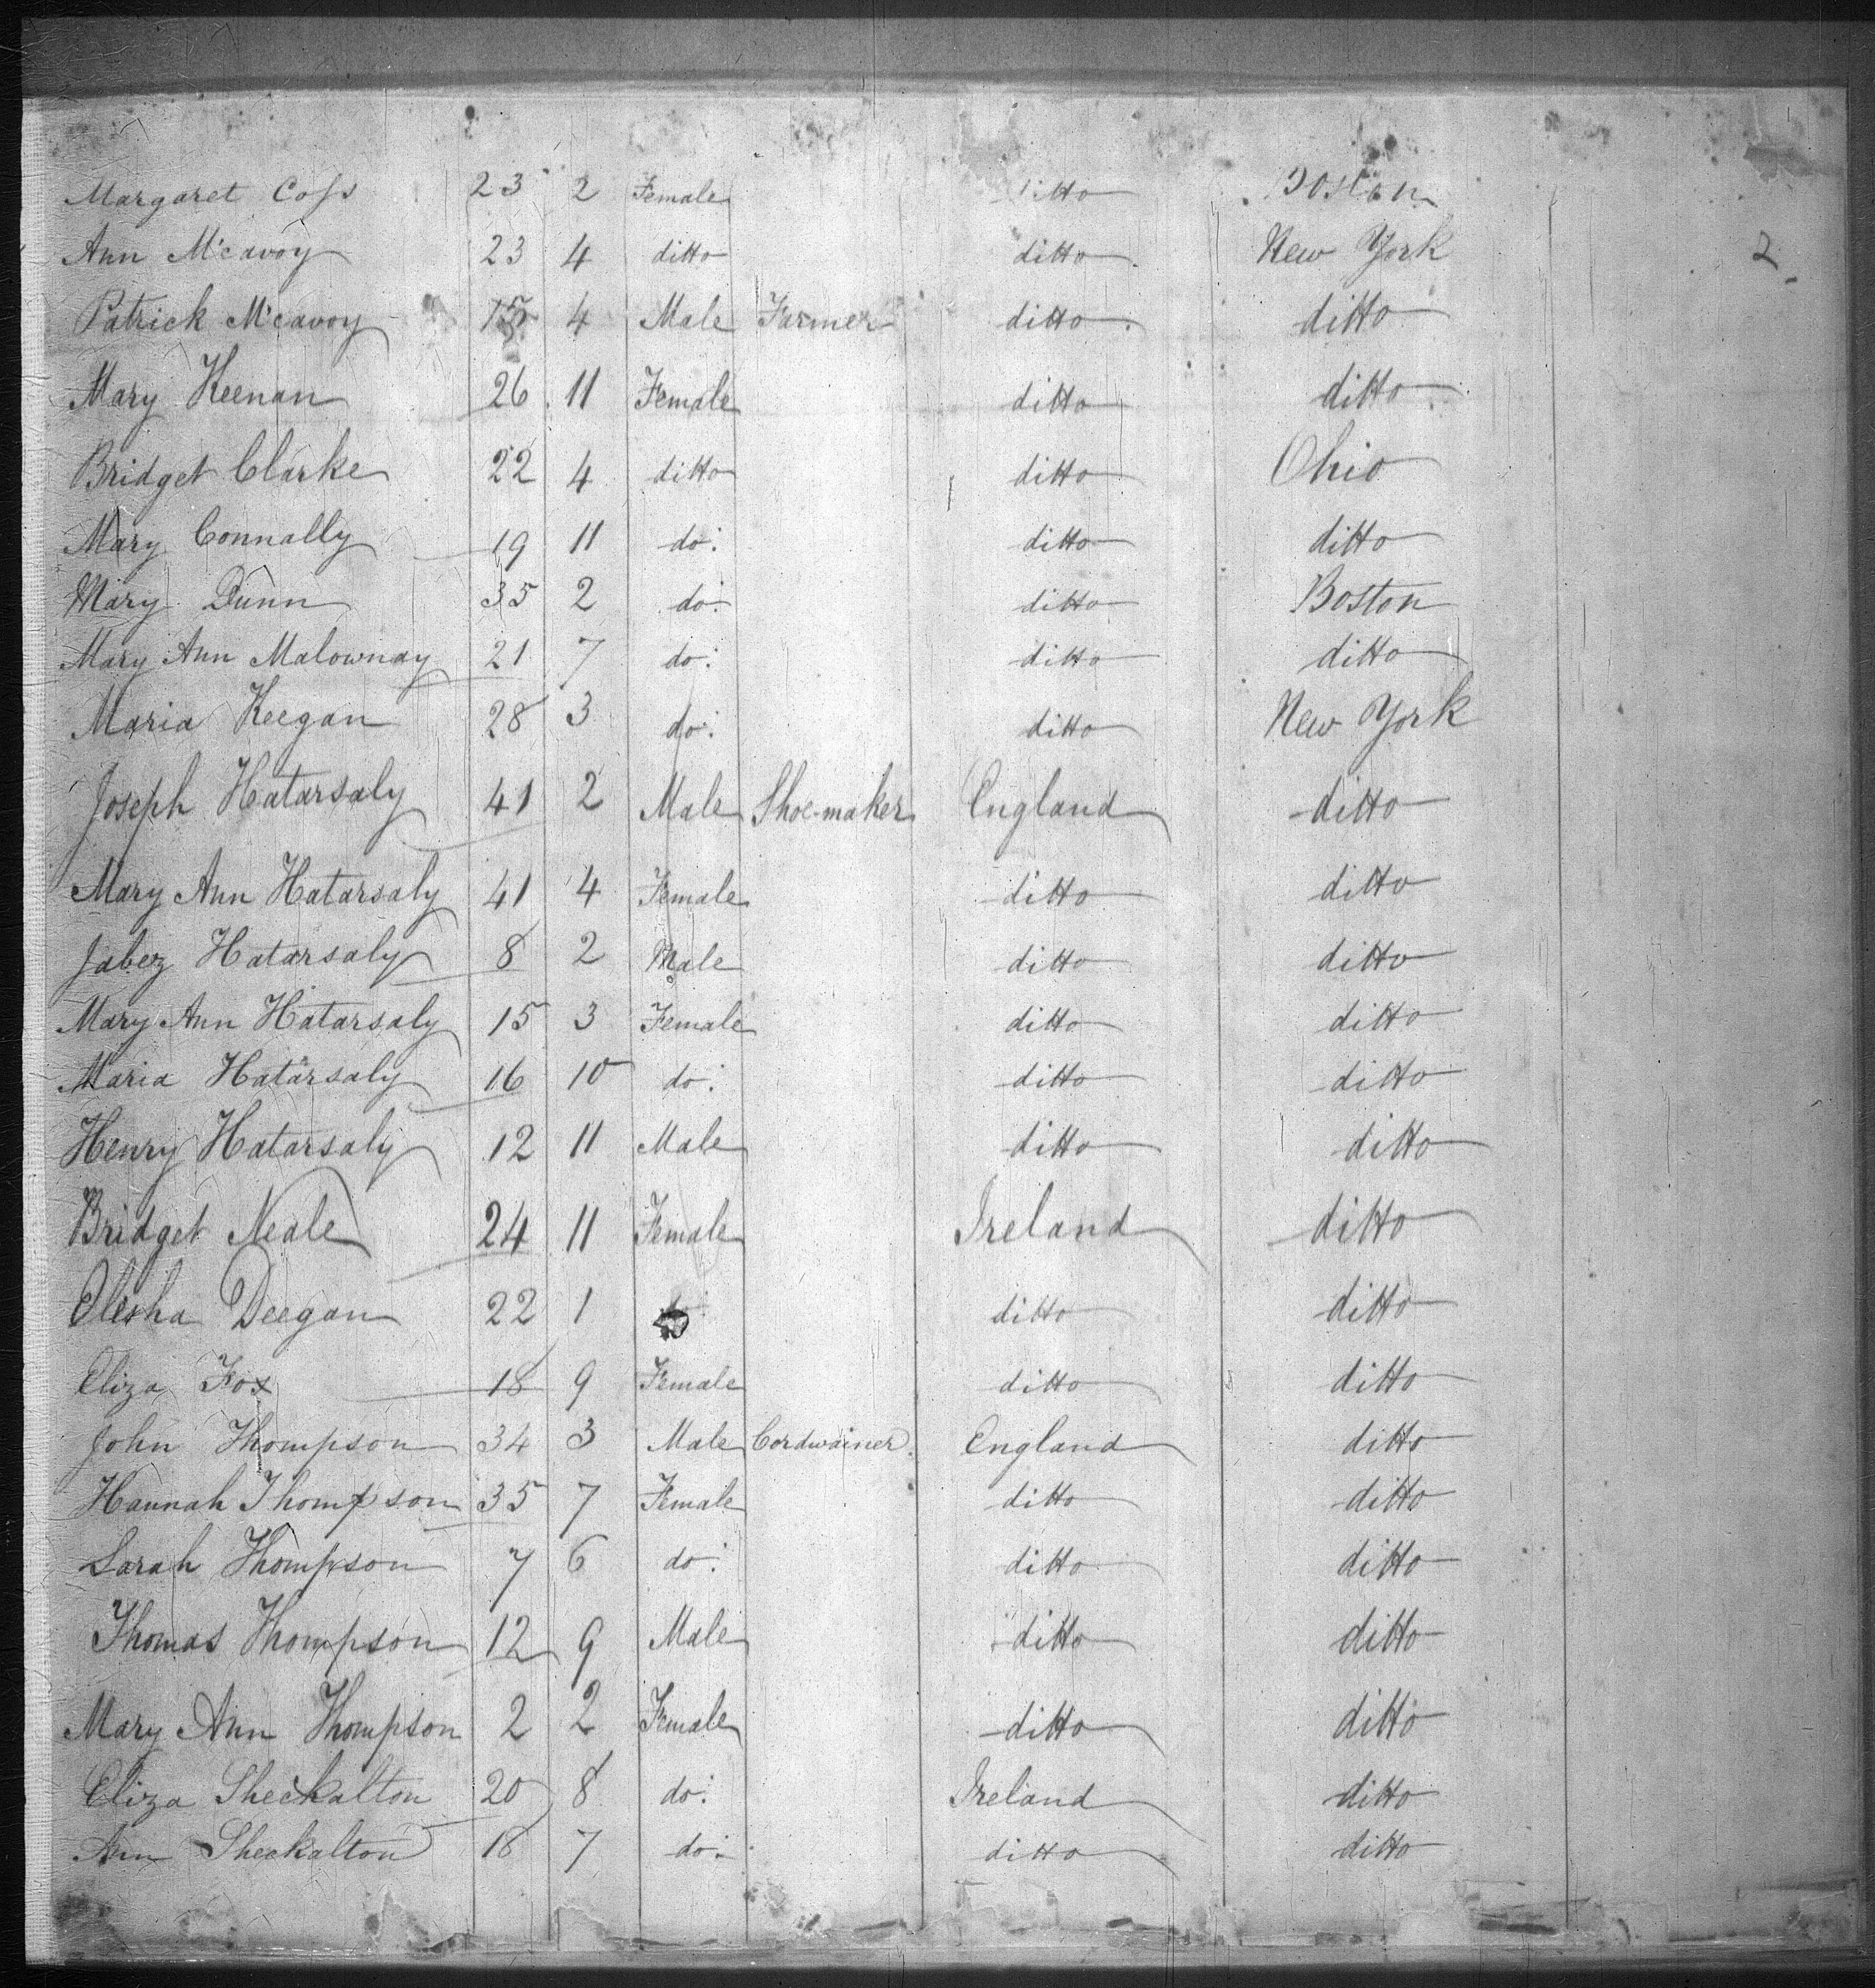 Margaret Coss 23 2 Female ditto Boston
Ann McAvoy 23 4 ditto ditto New York 2
Patrick McAvoy 15 4 Male Farmer ditto ditto
Mary Keenan 26 11 Female ditto ditto
Bridget Clarke 22 4 ditto ditto Ohio
Mary Connally 19 11 do: ditto ditto
Mary Dunn 35 2 do: ditto Boston
Mary Ann Malownay 21 7 do: ditto ditto
Maria Keegan 28 3 do: ditto New York
Joseph Hatarsaly 41 2 Male Shoe-maker England ditto
Mary Ann Hatarsaly 41 4 Female ditto ditto
Jabez Hatarsaly 8 2 Male ditto ditto
Mary Ann Hatarsaly 15 3 Female ditto ditto
Maria Hatarsaly 16 10 do: ditto ditto
Henry Hatarsaly 12 11 Male ditto ditto
Bridget Neale 24 11 Female Ireland ditto
Elisha Deegan 22 1 ditto ditto
Eliza Fox 18 9 Female ditto ditto
John Thompson 34 3 Male Cordwainer England ditto
Hannah Thompson 35 7 Female ditto ditto
Sarah Thompson 7 6 do: ditto ditto
Thomas Thompson 12 9 Male ditto ditto
Mary Ann Thompson 2 2 Female ditto ditto
Eliza Sheckalton 20 8 do: Ireland ditto
Ann Sheckalton 18 7 do: ditto ditto